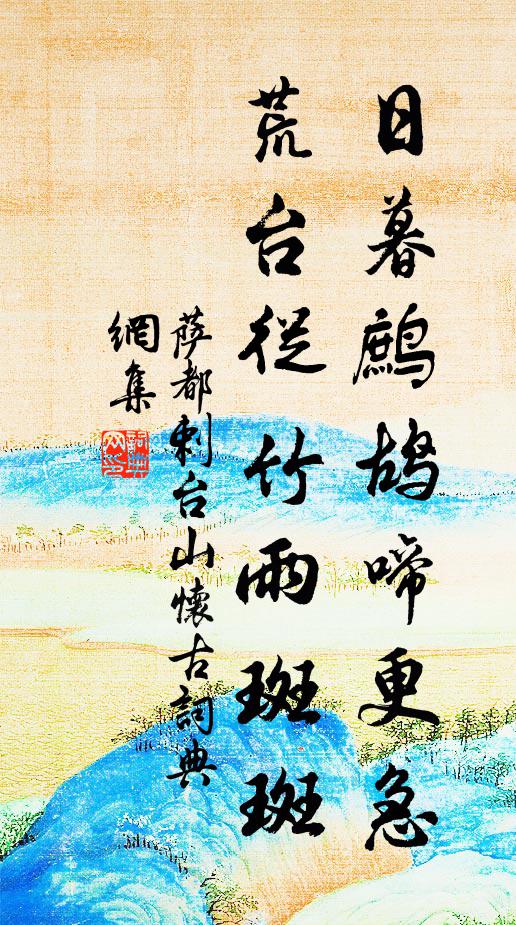 日暮鷓鴣啼更急
荒台從竹雨斑斑
薩都剌台山懷古詞典
網集